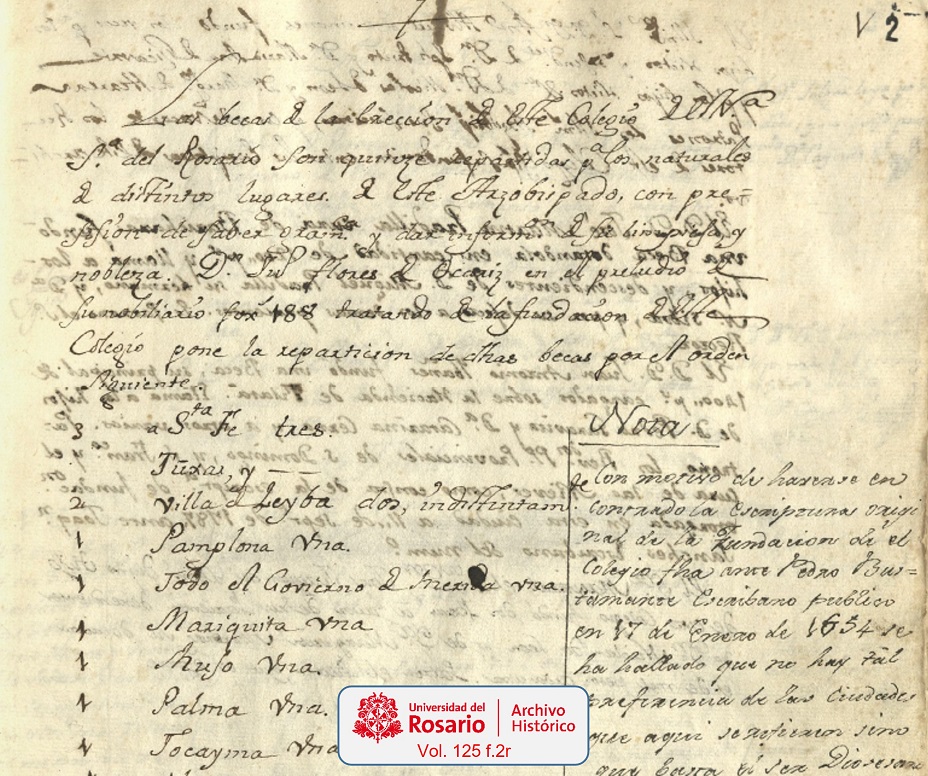 V 2
Las becas de la ereccion de este Colegio de N.ª
S.ª del Rosario son quinze repartidas p.ª los naturales
de distintos lugares de este Arzobispado, con pre=
sision de saber gram.ca y dar inform.on de su limpiesa y
nobleza. D.n Ju.o Flores de Ocariz en el preludio de
su nobiliario fox 188 tratando de la fundacion de este
Colegio pone la reparticion de dhas becas por el orden
siguiente.
3 a S.ta Fe tres.
Tunxa, y
2 Villa de Leyba dos, indistintam.te
1 Pamplona Vna.
1 Todo el Govierno de Merida vna.
1 Mariquita Vna
1 Muso Vna.
1 Palma Vna.
1 Tocayma Vna
Nota
Con motivo de haverse en
contrado la Escriptura origi
nal de la Fundacion de el
Colegio fha ante Pedro Bus=
tamante Escribano publico
en 17 de Enero de 1654 se
ha hallado que no hay tal
preferencia de las Ciudades
que aqui se refieren sino
que basta el ser Diosesano
Universidad del
Rosario
Archivo
Histórico
Vol. 125 f.2r